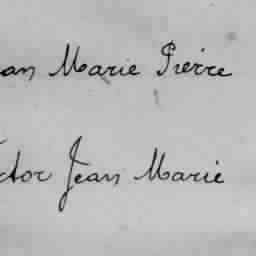 an Marie Pierre
ctor Jean Marie